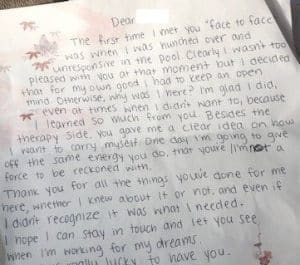 Dear
The first time I met you "face to face"
was when I was hundred over and
unresponsive in the pool. Clearly I wasn't too
pleased with you at that moment but I decided
that for my own good I had to keep an open
mind. Otherwise, why was I here? I'm glad I did,
even at times when I didn't want to, because
I learned so much from you. Besides the
therapy side, you gave me a clear idea on how
I want to carry myself. One day I'm going to give
off the same energy you do, that you're/I'm not a
force to be reckoned with.
Thank you for all the things you've done for me
here, whether I knew about it or not, and even if
I didn't recognize it was what I needed.
I hope I can stay in touch and let you see
when I'm working for my dreams
lucky to have you.